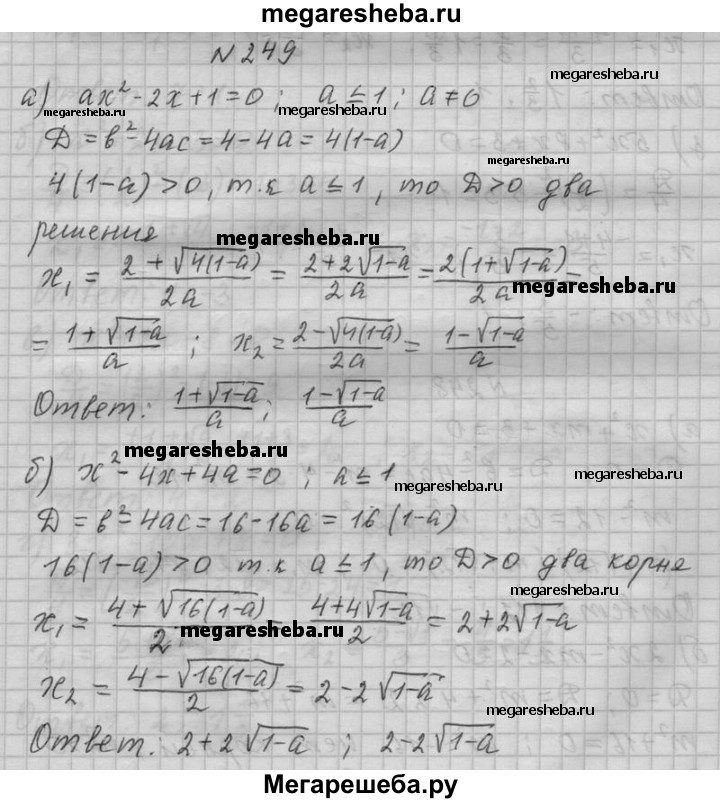 megaresheba.ru
N 249
megaresheba.ru
а) ax² - 2x + 1 = 0 ; a ≤ 1 ; a ≠ 0
megaresheba.ru megaresheba.ru
D = в² - 4ac = 4 - 4a = 4(1-a)
megaresheba.ru
4(1-a) > 0, т.к a ≤ 1, то D > 0 два
решения
megaresheba.ru
x₁ = (2 + √4(1-a))/2a = (2 + 2√1-a)/2a = 2(1 + √1-a)/2a =
megaresheba.ru
= (1 + √1-a)/a ; x₂ = (2 - √4(1-a))/2a = (1 - √1-a)/a
Ответ: (1 + √1-a)/a ; (1 - √1-a)/a
megaresheba.ru
б) x² - 4x + 4a = 0 ; a ≤ 1
megaresheba.ru megaresheba.ru
D = в² - 4ac = 16 - 16a = 16(1-a)
16(1-a) > 0 т.к a ≤ 1, то D > 0 два корня
megaresheba.ru
x₁ = (4 + √16(1-a))/2 = (4 + 4√1-a)/2 = 2 + 2√1-a
megaresheba.ru
megaresheba.ru
x₂ = (4 - √16(1-a))/2 = 2 - 2√1-a
megaresheba.ru
Ответ: 2 + 2√1-a ; 2 - 2√1-a
megaresheba.ru
Мегарешеба.ру